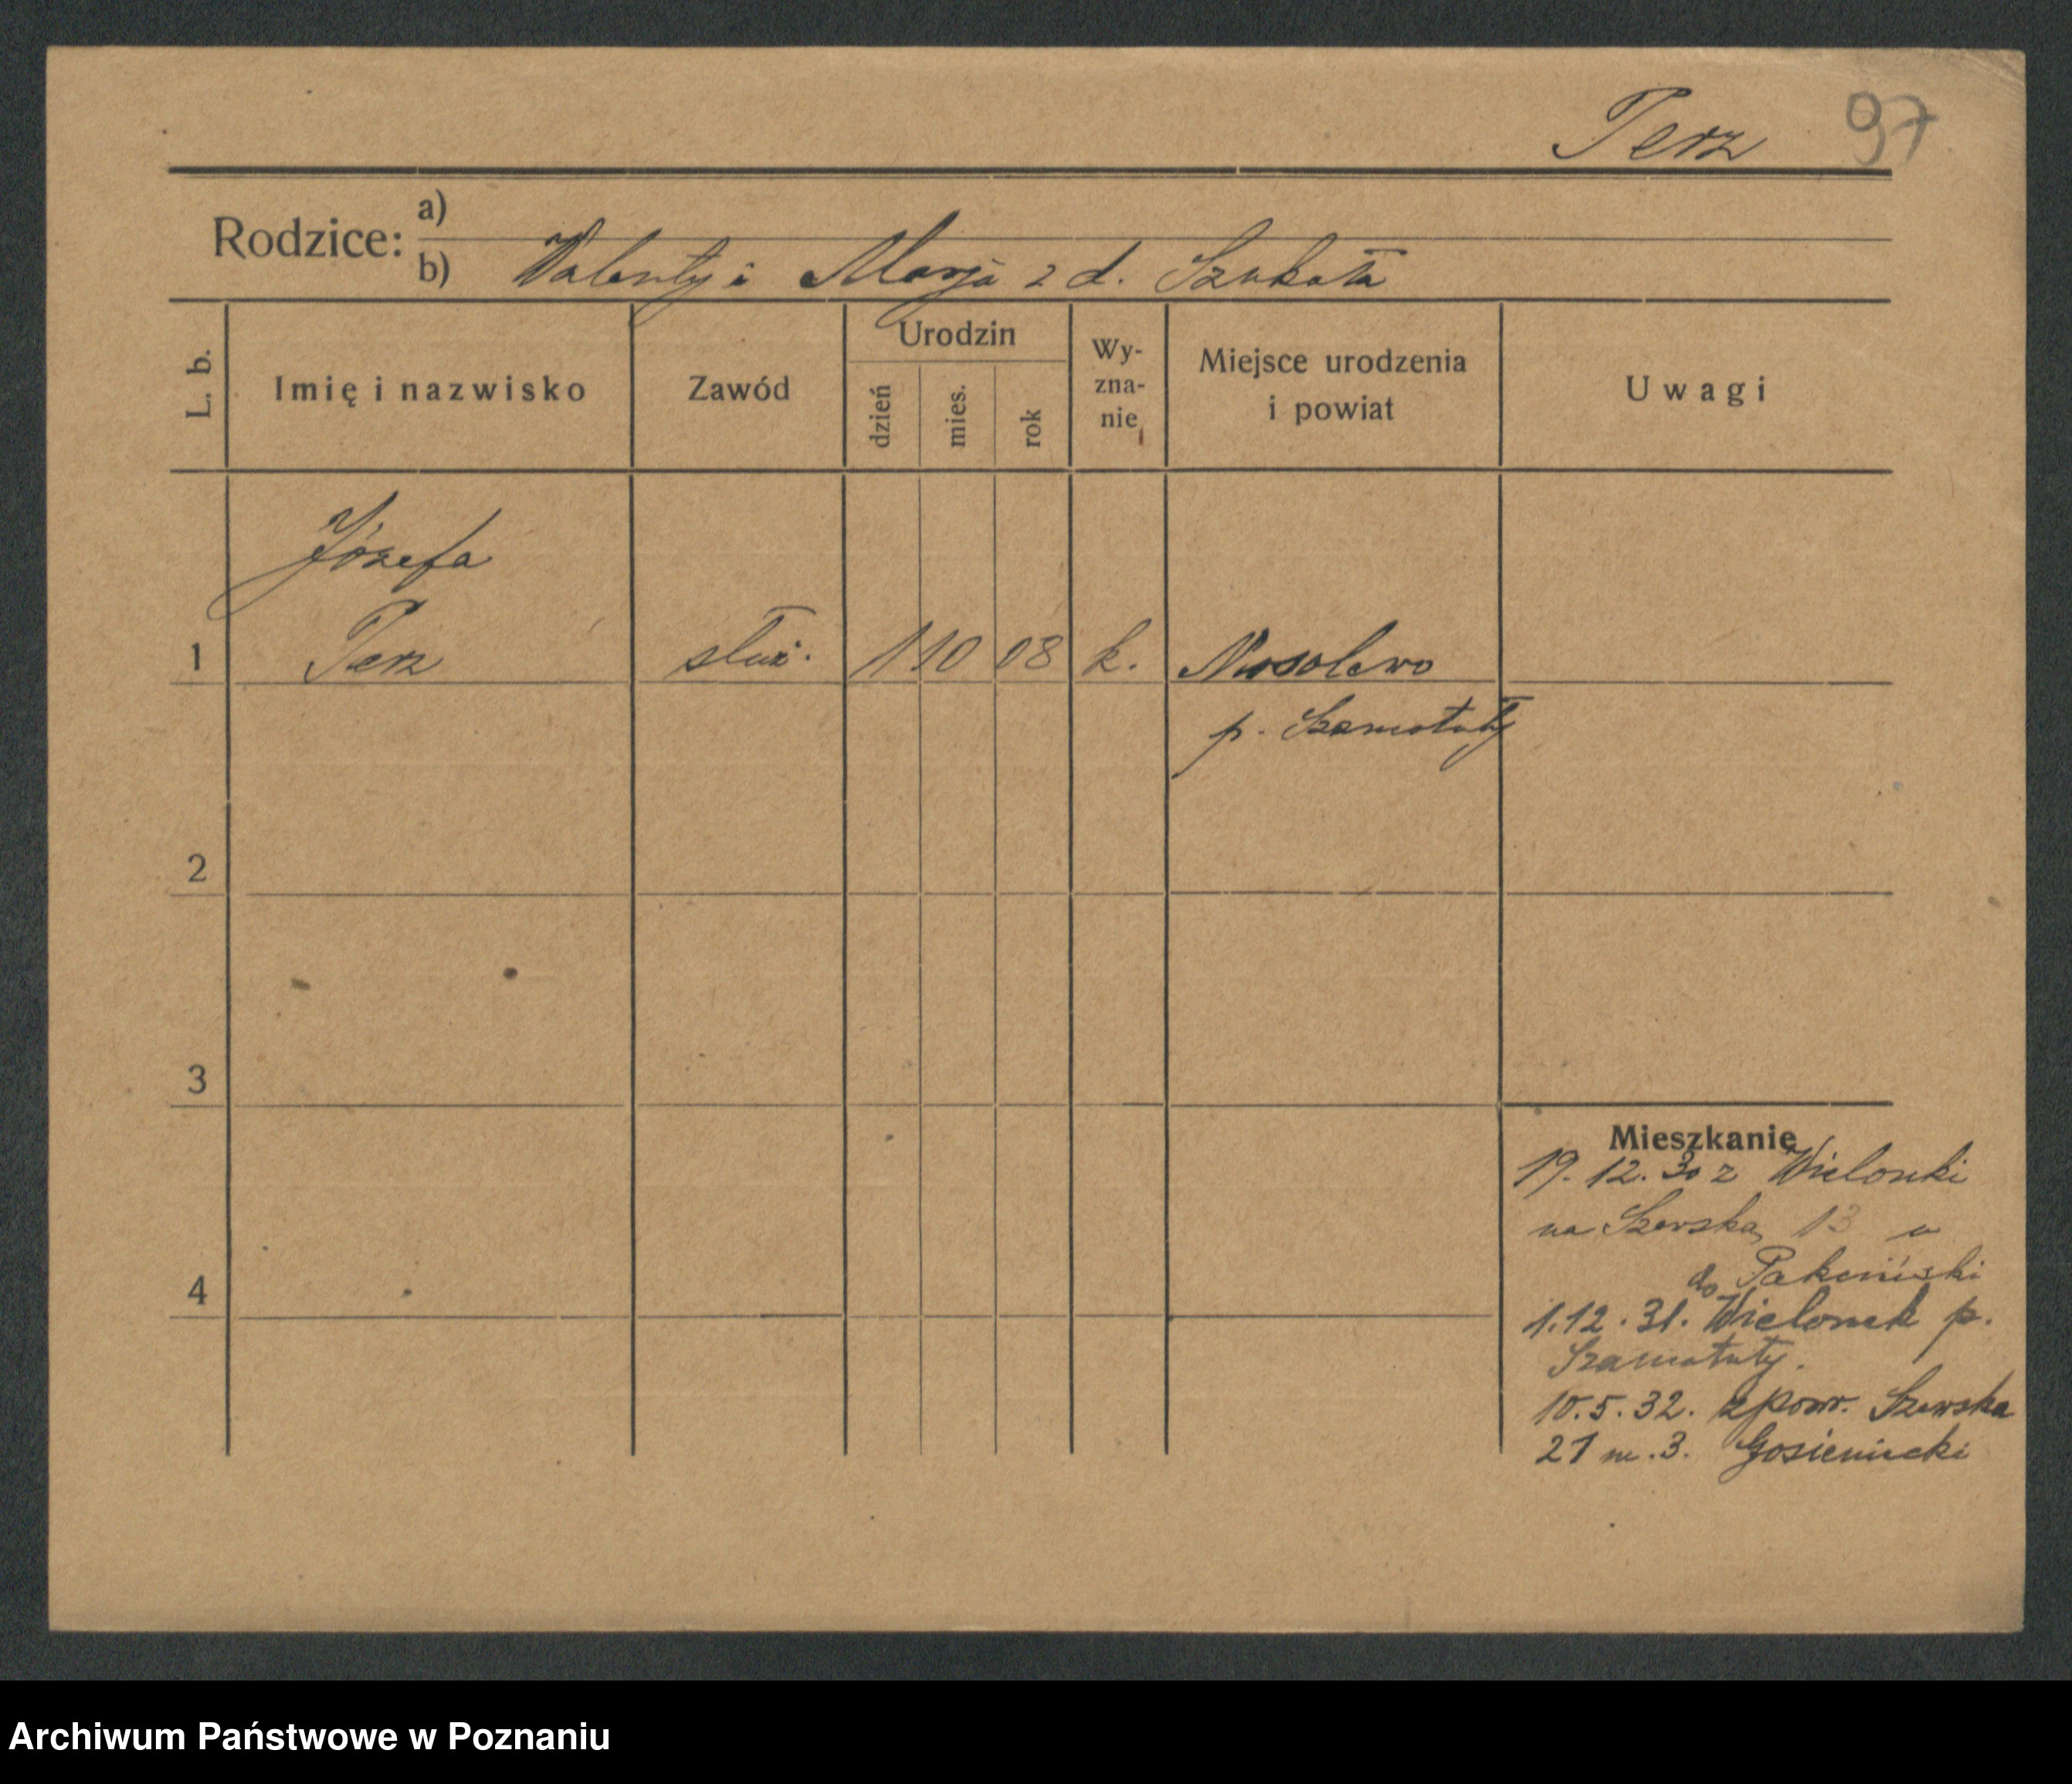 Perz 97
Rodzice: a)
b) Walenty i Marja z d. Szukała
L. b. Imię i nazwisko Zawód Urodzin dzień mies. rok Wy-zna-nie Miejsce urodzenia i powiat Uwagi
Józefa
1 Perz służ. 1 10 08 k. Nosolewo
p. Szamotuły
2
3
4
Mieszkanie
19.12.30 z Wielonki
na Szewską 13 u
do
1.12.31. Wielonek p.
Szamotuły.
10.5.32. z powr. Szewska
21 m. 3. Gosieniecki
Archiwum Państwowe w Poznaniu